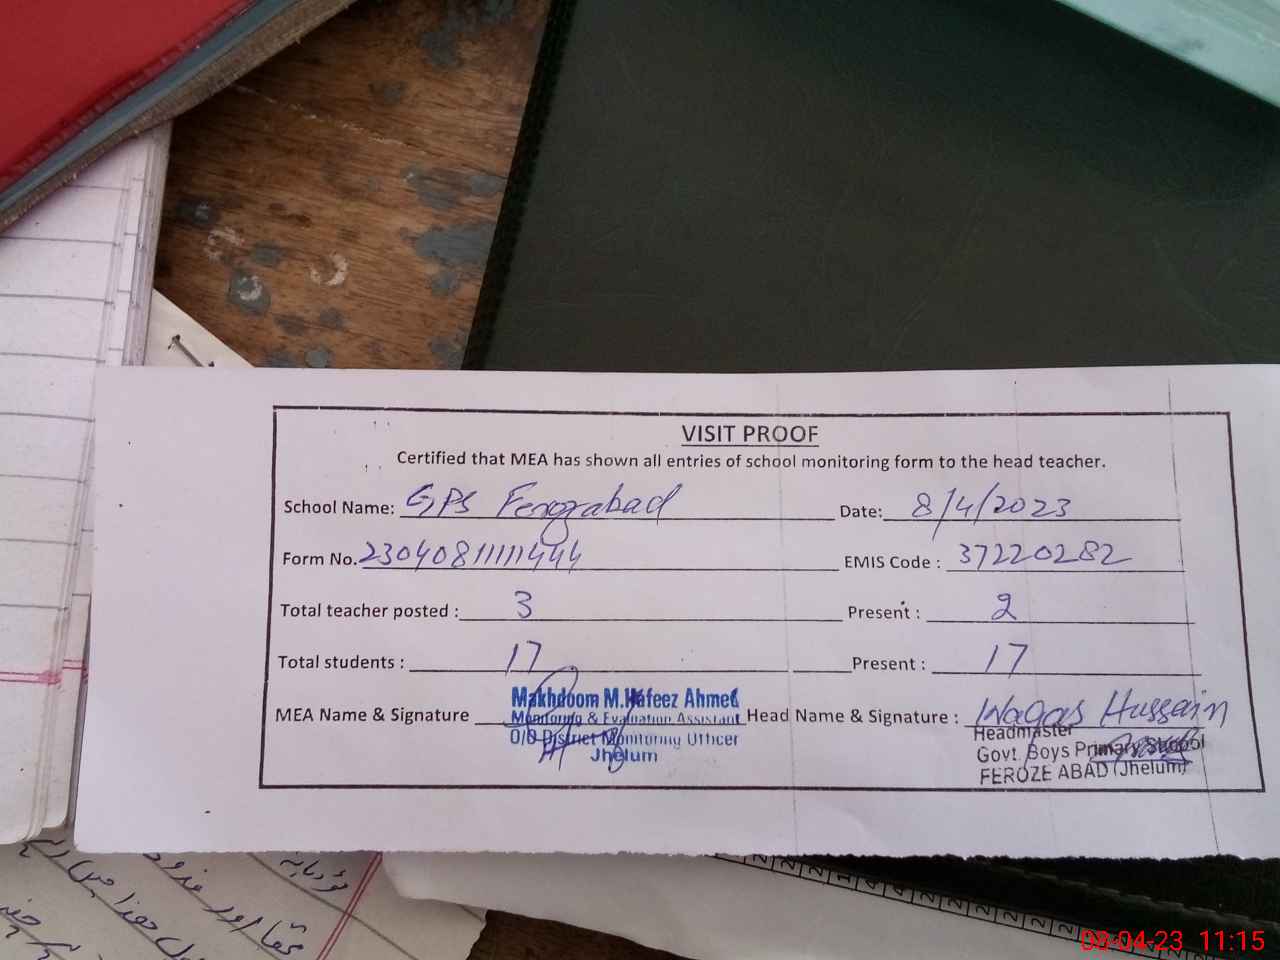 VISIT PROOF
Certified that MEA has shown all entries of school monitoring form to the head teacher.
School Name: GPS Ferozabad Date: 8/4/2023
Form No. 23040811111444 EMIS Code : 37220282
Total teacher posted : 3 Present : 2
Total students : 17 Present : 17
MEA Name & Signature Makhdoom M.Hafeez Ahmed Head Name & Signature : Waqas Hussain
Monitoring & Evaluation Assistant
O/O District Monitoring Officer
Jhelum
Headmaster
Govt. Boys Primary School
FEROZE ABAD (Jhelum)
08-04-23 11:15